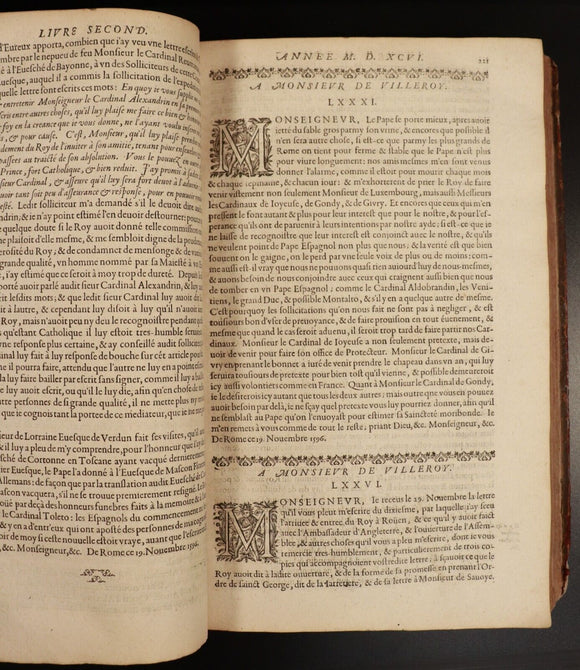 LIVRE SECOND.
d'Eureux apporta, combien que i'ay veu vne lettre escrite
mbre par le nepueu de feu Monsieur le Cardinal
é à l'Euesché de Bayonne, à vn des Solliciteurs de cette Cour
Euesque, auquel il a commis la sollicitation de l'expedition
quelle lettre sont escrits ces mots: En quoy il vous supplie
entretenir Monseigneur le Cardinal Alexandrin en sa
rien entre autres choses, qu'il luy plaise me faire ce bien
foy en la creance que ie vous donne, ne l'ayant voulu
s, & pour cause. C'est, Monsieur, qu'il luy plaise prendre
demment du Roy de l'inuiter à son amitie, tenant pour
passees au traicté de son absolution. Vous le pouuez
Prince, fort Catholique, & bien reduit. J'ay promis à
sieur Cardinal, & asseure qu'il luy sera fort deuot à l'aduenir
uoir tant soit peu d'asseurance & response, pour en pouuoir
esté. Ledit solliciteur m'a demandé s'il le deuoit
ndrin, & ie n'ay point estimé l'en deuoir destourner; pource
quelque doute si le Roy auoit ordonné telle
me plusioit d'elle mesme, & me semblois digne de la
erosité du Roy, & de condamner de mensonge & de
de grande qualité, vn homme nommé par sa Majesté à
i'ay estimé que ce seroit à moy trop de dureté. Depuis
porté auoir parlé audit sieur Cardinal Alexandrin, & luy
rit lesdits mots; & que ledit sieur Cardinal luy auoit
it à lautre, & cependant luy disoit à luy qu'il n'auoit
Roy, mais n'auoit peu ny deu le rencontrer
qu'estant Catholique il luy estoit tres-humble
onne response plus certaine, & ay conseillé audit sollicit
inal luy fait à luy response de bouche sur cet article
il me pourra faire, attendu que l'autre ne luy en a point
a luy faire bailler par escrit sans signer, comme il luy a
e luy auoit escrit, ou qu'il le luy die, afin qu'en chose de
tres personnes de si grande qualité, il ne mette plus ny
que ie cognois tant la portee de ce mediateur, que ie ne
ieur de Lorraine Euesque de Verdun fait ses visites, qu'il
& il luy a pleu de m'y comprendre, pour l'honneur que
sché de Cortonne en Toscane ayant vacqué dernierement
ier Euesque, le Pape l'a donné à l'Euesque de Mascon
Allemans: de façon que par la translation audit Euesché de
ascon vacquera, s'il ne se trouue premierement resigné. Le
oüé par deçà des honneurs funebres faits à la memoire
le Cardinal Toleto: les Espagnols du commencement
& y en a d'entr'eux qui ont aposté des personnes de ma
oir de moy si ceste nouuelle estoit vraye, auant que
, &c. Monseigneur, &c. De Rome ce 19. Nouembre 1596.
ANNEE M. D. XCVI. 221
A MONSIEVR DE VILLEROY.
LXXXI.
MONSEIGNEVR, Le Pape se porte mieux, apres auoir
ietté du sable gros parmy son vrine, & encores que possible il
n'en sera autre chose, si est-ce que parmy les plus grands de
Rome on tient pour ferme & stable que le Pape n'est plus
pour viure longuement: nos amis mesmes m'en sont venus
donner l'alarme, comme s'il estoit pour mourir chaque mois
& chaque sepmaine, & chacun iour: & m'exhortent de prier le Roy de faire
venir vistement non seulement Monsieur de Luxembourg, mais aussi Messieurs
les Cardinaux de Ioyeuse, de Gondy, & de Givry. Et encores que ceux qui m'en
pressent le font autant & plus pour leur interest que pour le nostre, & pour l'esperance
qu'ils ont de paruenir à leurs intentions par nostre ayde; si est-ce que ie
ne laisse de recognoistre que leur interest est conjoinct auec le nostre, & qu'ils
ne veulent point de Pape Espagnol non plus que nous; & la verité est que bien
souuent on le gaigne, on le perd par vne seule voix de plus ou de moins: comme
aussi est-il vray que nous ne pouuons quasi rien auiourd'huy de nous-mesmes,
& auons besoin de nous conjoindre auec ceux qui craignent aussi bien que nous
de tomber en vn Pape Espagnol: comme le Cardinal Aldobrandin, les Venitiens,
le grand Duc, & possible Montalto, & s'il y en a quelque autre de mesme.
C'est pourquoy les sollicitations qu'on nous fait ne sont pas à negliger, & est
tousiours bon d'vser de preuoyance, & de faire pouruision en tout euenement, &
mesme que quand le cas seroit aduenu, il seroit trop tard de faire partir nos Cardinaux.
Monsieur le Cardinal de Ioyeuse a non seulement pretexte, mais deuoir
de venir pour faire son office de Protecteur. Monsieur le Cardinal de Givry
en prenant le bonnet à iuré de venir prendre le chapeau dans vn an, qui luy
seruira tousiours de pretexte pour bien tost qu'il vienne, & possible demeureront
icy aussi volontiers comme en France. Quant à Monsieur le Cardinal de Gondy,
ie le desirerois icy autant que tous les deux autres; mais outre que vous en pouuez
auoir besoin par delà, ie ne sçay quel pretexte vous luy pourriez donner, afin qu'il
ne semblast au Pape qu'on l'enuoyast pour estimer sa Saincteté moribonde. Ie
m'en remets à vous comme de tout le reste; priant Dieu, &c. Monseigneur, &c.
De Rome ce 19. Nouembre 1596.
A MONSIEVR DE VILLEROY.
LXXVI.
MONSEIGNEVR, Ie receus le 25. Nouembre la lettre
qu'il vous pleut m'escrire du dixiesme, par laquelle i'ay sceu
l'arriuee & entree du Roy à Roüen, & ce qu'il y auoit faict
auec l'Ambassadeur d'Angleterre, & l'ouuerture de l'Assemblee,
& autres choses qu'il vous a pleu m'escrire, dont ie vous
remercie tres-humblement, & particulierement de trois copies
qui accompagnoient vostredite lettre: à sçauoir ce que le
Roy auoit dit à ladite ouuerture, & de la forme de sa promesse en prenant l'Ordre
de sainct George, dit de la Iarretiere, & de sa lettre à Monsieur de Sauoye.